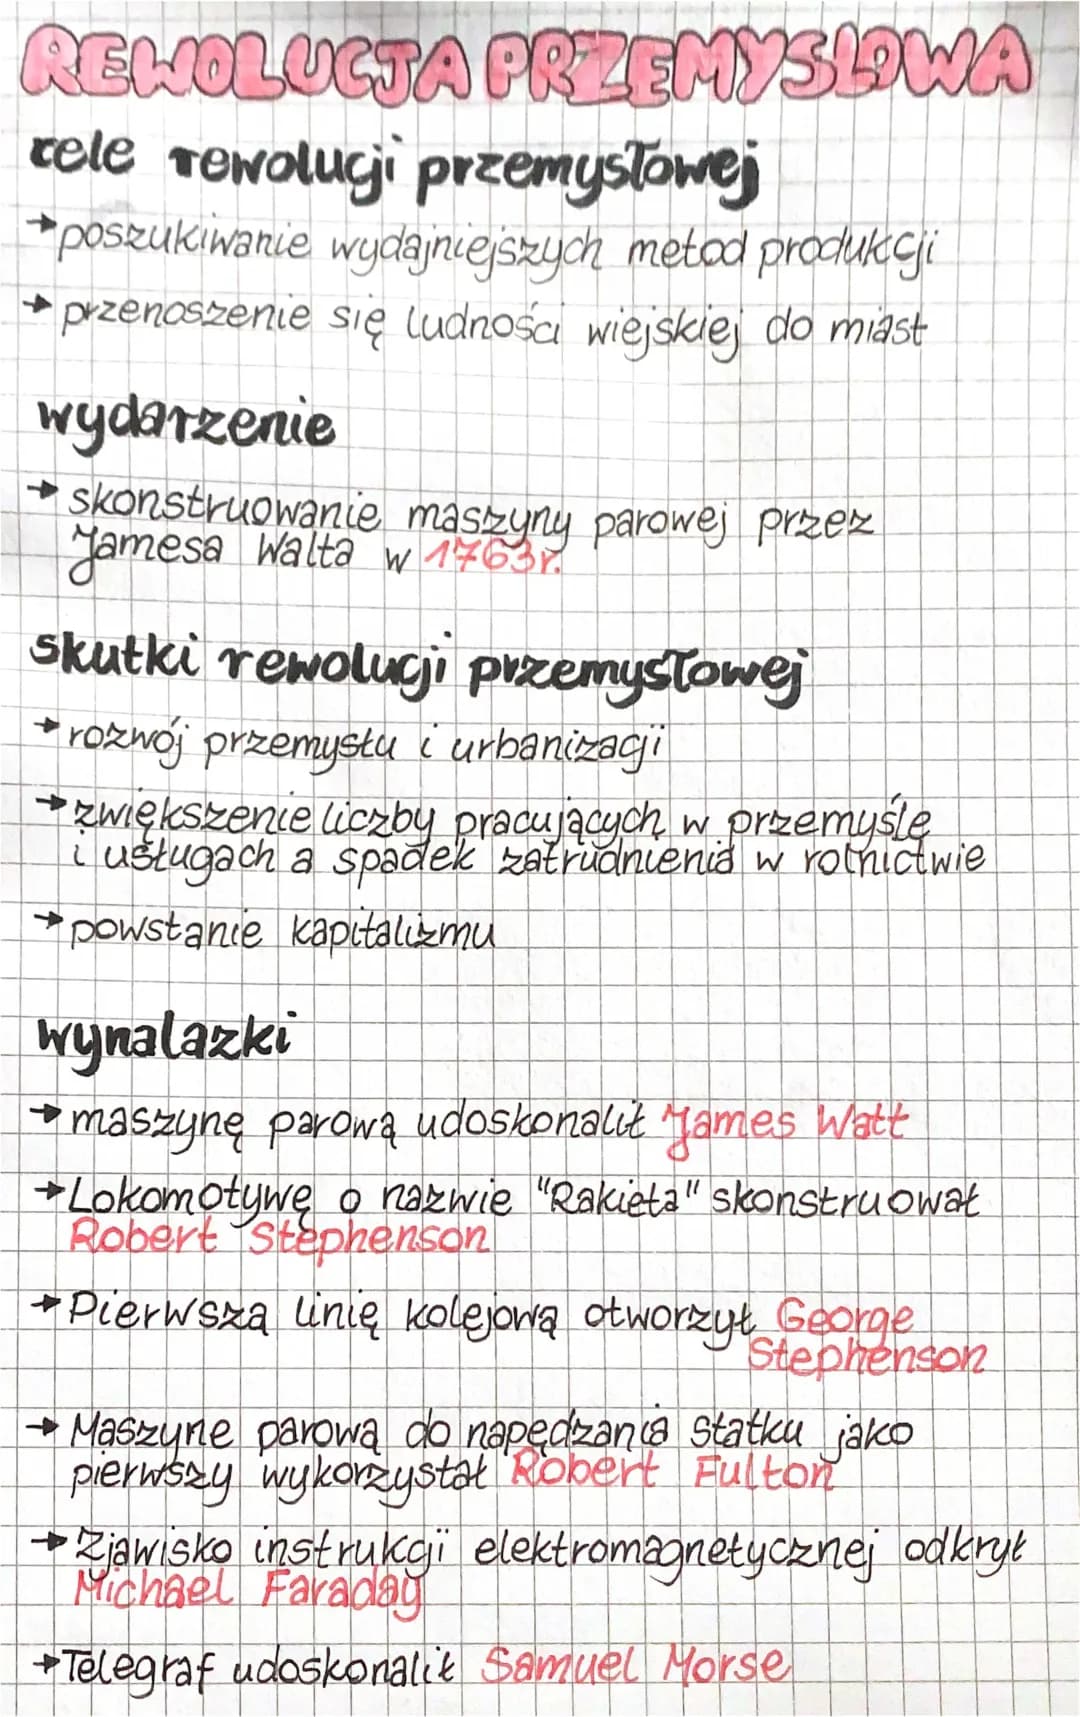 REWOLUCJA PRZEMYSŁOWA
cele rewolucji przemysłowej
→poszukiwanie wydajniejszych metod produkcji
→ przenoszenie się ludności wiejskiej do miast
wydarzenie
→ skonstruowanie maszyny parowej przez
Jamesa Walta w 1763r.
skutki rewolucji przemysłowej
→rozwój przemysłu i urbanizacji
→zwiększenie liczby pracujących w przemyślę
i usługach a spadek zatrudnienia w rolnictwie
→powstanie kapitalizmu
wynalazki
→maszynę parową udoskonalił James Watt
→Lokomotywę o nazwie "Rakieta" skonstruował
Robert Stephenson
→Pierwszą linię kolejową otworzył George
Stephenson
→ Maszyne parową do napędzania statku jako
pierwszy wykorzystał Robert Fulton
→Zjawisko instrukcji elektromagnetycznej odkrył
Michael Faraday
→Telegraf udoskonalił Samuel Morse